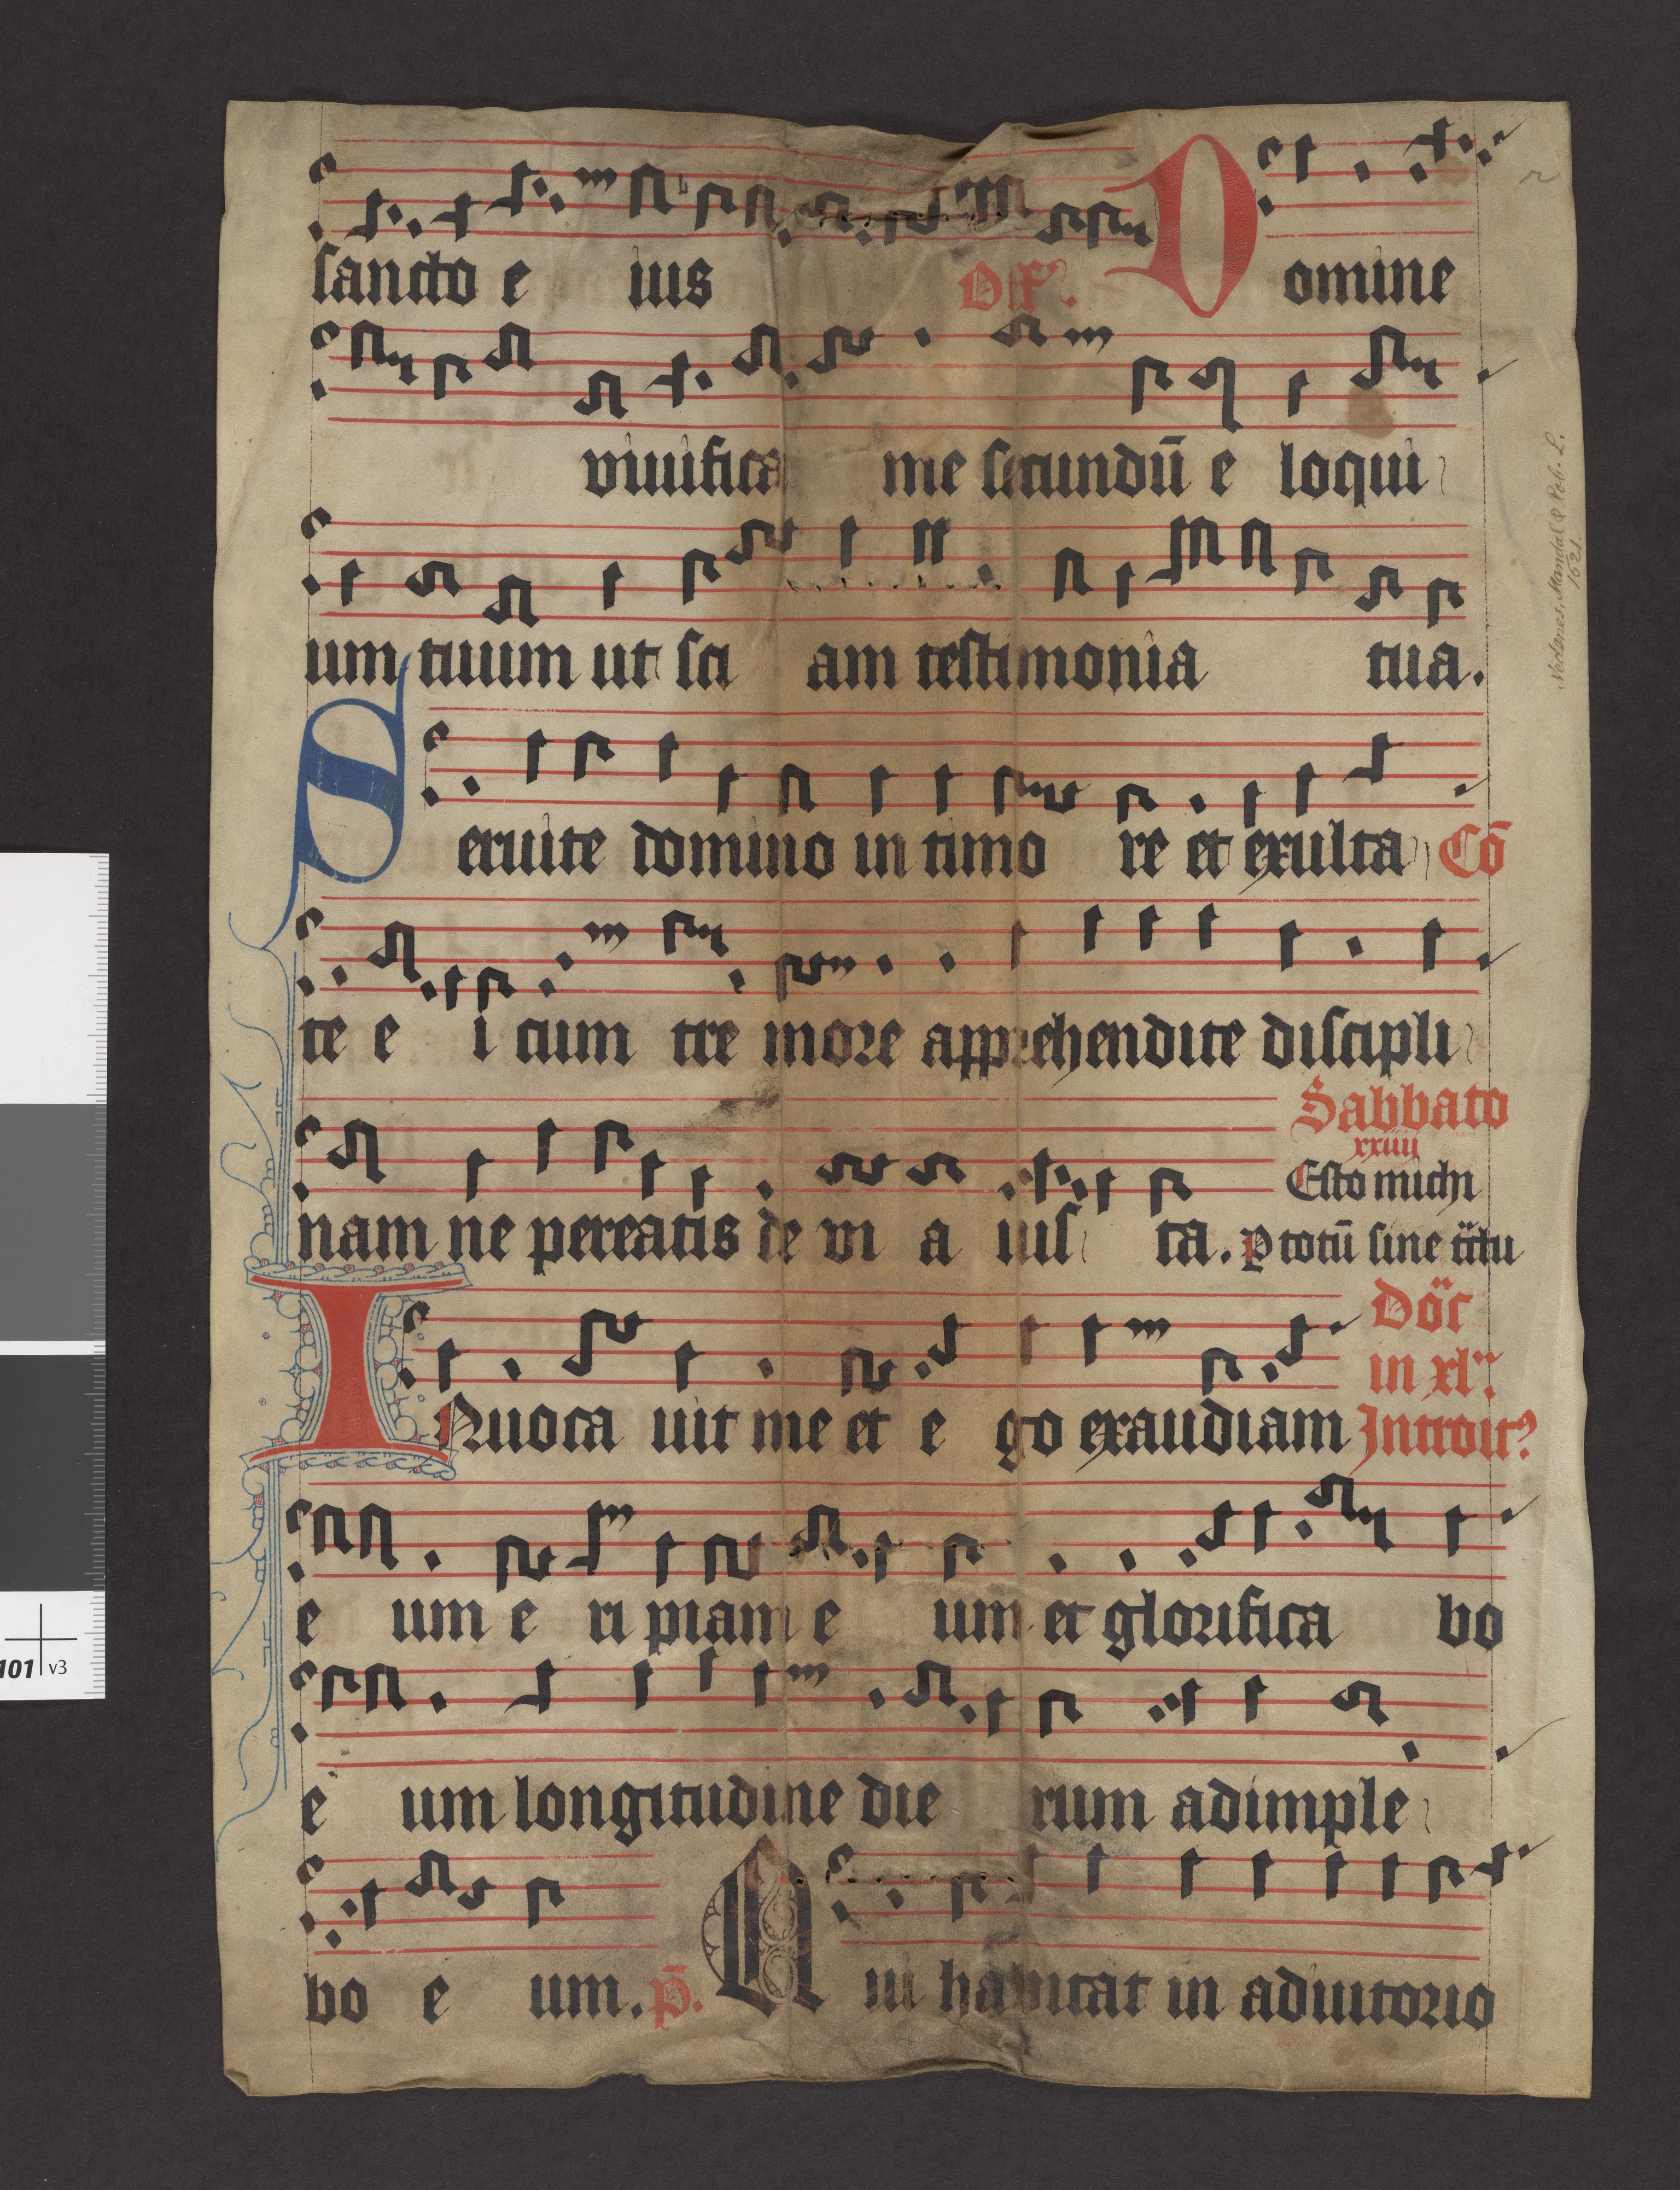 sancto e ius Off. Domine
viuifica me secundū e loqui
um tuum ut sci am testimonia tua.
Seruite domino in timo re et exulta Cō
te e i cum tre more apprehendite discipli
Sabbato
xxiiii
Esto michi
nam ne pereatis de vi a ius ta. P totū sine titu
Döc
in xl
INuoca uit me et e go exaudiam Introit
e um e ri piam e um et glorifica bo
e um longitudine die rum adimple
bo e um. p̄. Qui habitat in adiutorio
Nedenes, Mandal & Rob. L.
1621.
101 v3